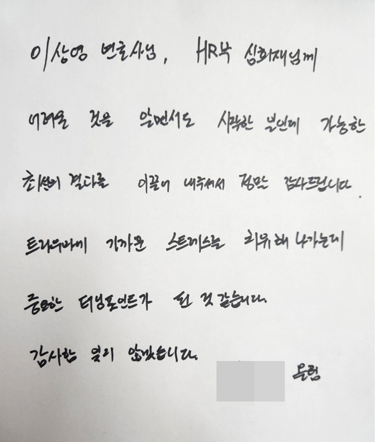 이상영 변호사님, HR부 심희재님께
어려울 것을 알면서도 시작한 부인데 가능한
최선의 결과를 이끌어 내주셔서 정말 감사드립니다.
트라우마에 가까운 스트레스를 치유해 나가는데
중요한 터닝포인트가 된 것 같습니다.
감사함 잊지 않겠습니다.
올림